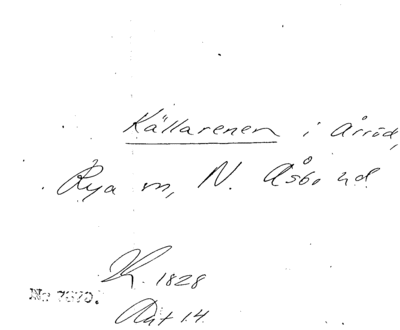 Källarenen i Årröd,
Rya sn, N. Åsbo hd
R. 1828
No 7570.
Art 14.